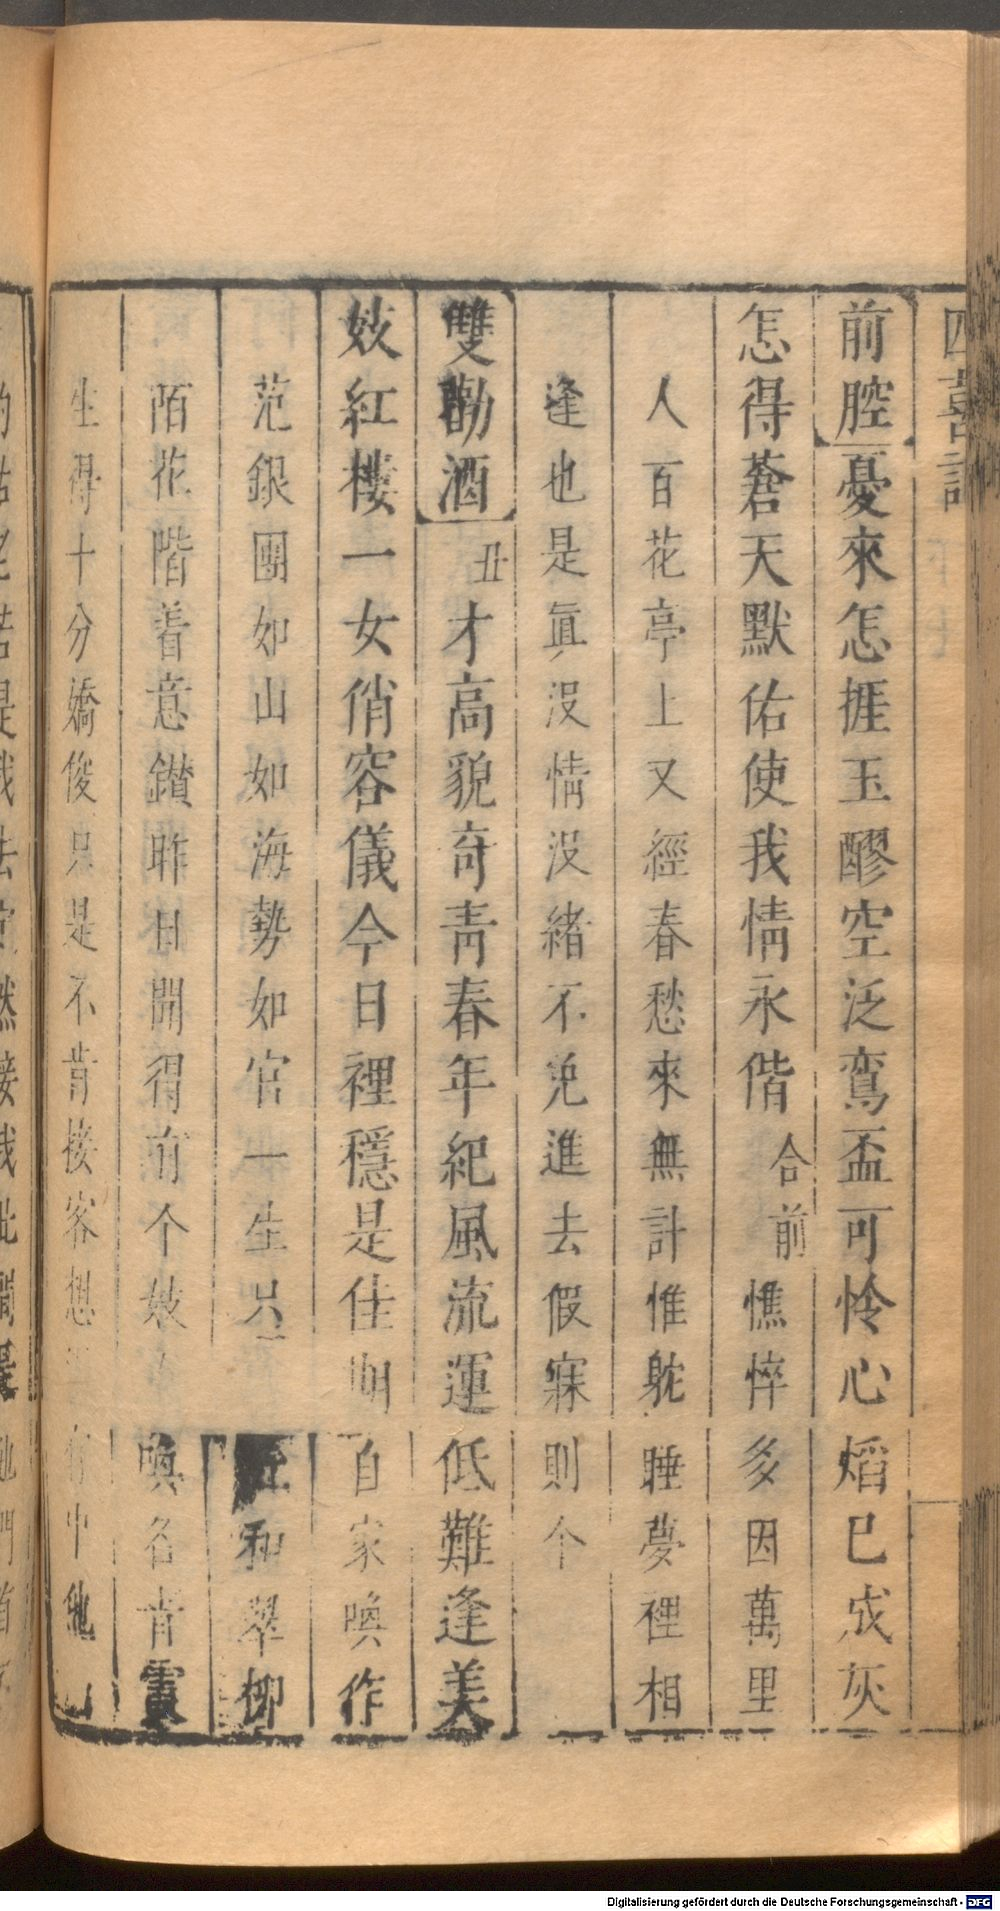 四喜記
前腔憂來怎捱玉醪空泛鸞盃可怜心熖已成灰
怎得蒼天默佑使我情永偕合前憔悴多因萬里
人百花亭上又經春愁來無計惟躭睡夢裡相
逢也是眞没情没緒不免進去假寐則个
雙勸酒丑才高貌奇青春年紀風流運低難逢美
妓紅樓一女俏容儀今日裡穩是佳期自家喚作
范銀團如山如海勢如官一生只 和翠柳
陌花階着意鑚昨日聞得有个妓 喚名青霞
生得十分嬌俊只是不肯接客想 中他
Digitalisierung gefördert durch die Deutsche Forschungsgemeinschaft - DFG